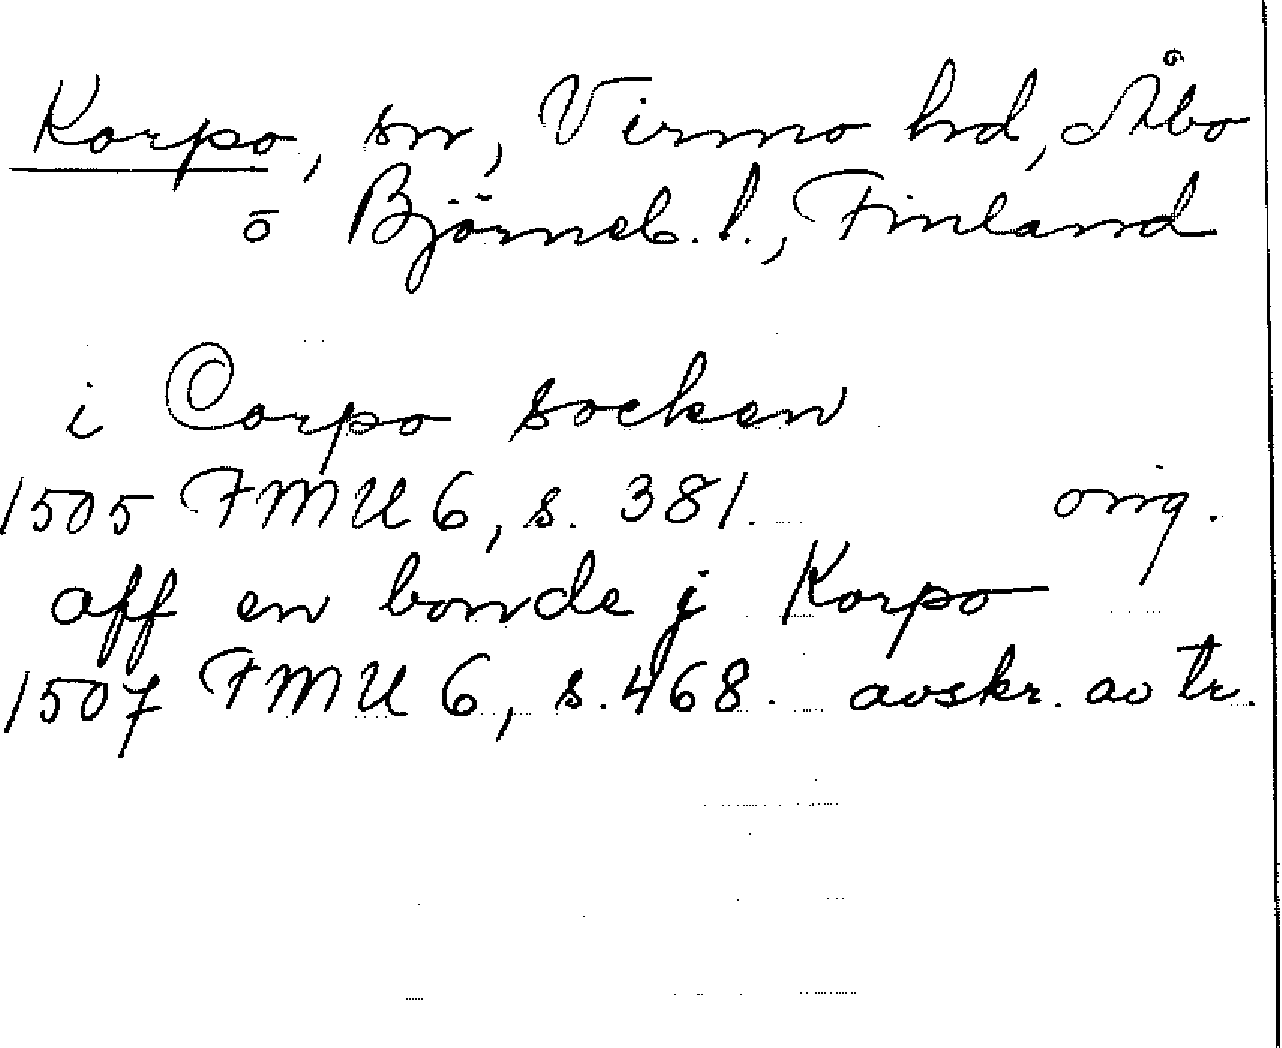 Korpo, sn, Virmo hd, Åbo
o Björneb. l., Finland
i Corpo socken
1505 FMU 6, s. 381. orig.
aff en bonde j Korpo
1507 FMU 6, s. 468. avskr. av tr.